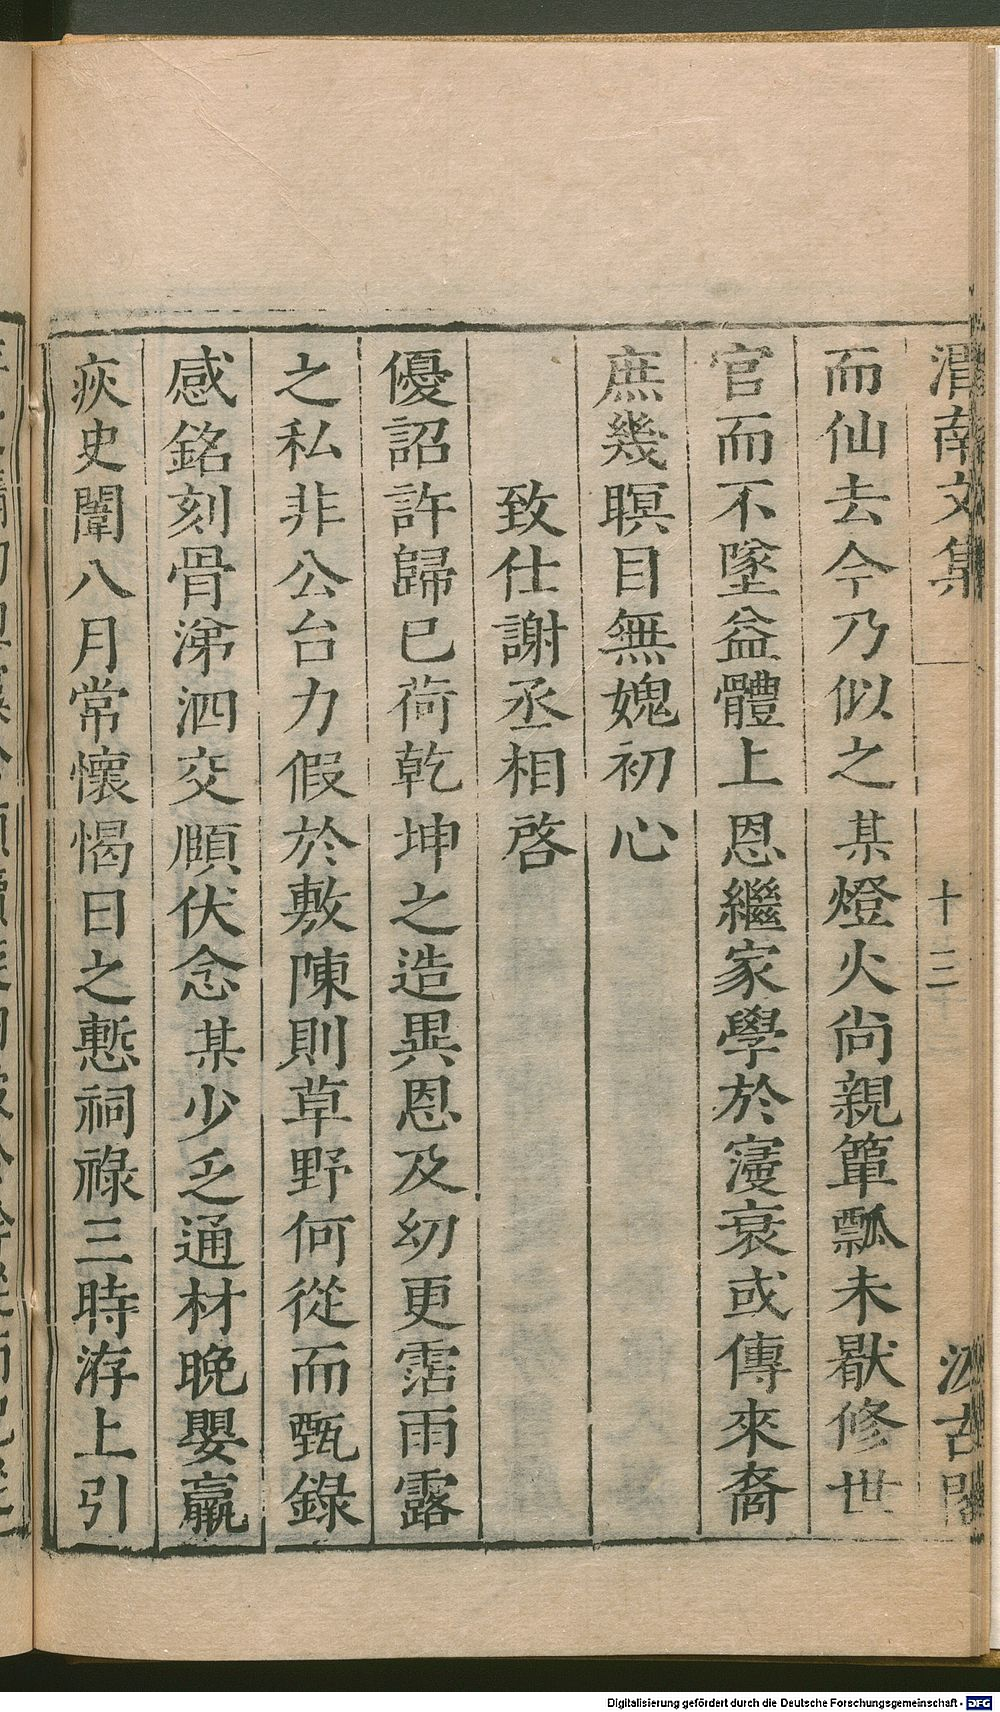 渭南文集 十三 汲古閣
而仙去今乃似之某燈火尚親簞瓢未厭修世
官而不墜益體上恩繼家學於寖衰或傳來裔
庶幾瞑目無媿初心
致仕謝丞相啓
優詔許歸已荷乾坤之造異恩及幼更霑雨露
之私非公台力假於敷陳則草野何從而甄錄
感銘刻骨涕泗交頤伏念某少乏通材晩嬰羸
疢史闈八月常懷愒日之慙祠祿三時洊上引
Digitalisierung gefördert durch die Deutsche Forschungsgemeinschaft - DFG